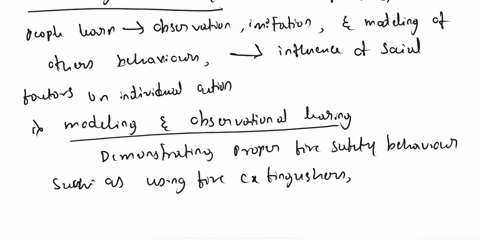 people learn → observation, imitation, & modeling of
others behaviours, → influence of social
factors on individual action
i> modeling & observational learing
Demonstrating proper fire safety behaviour
such as using fire extingushers,